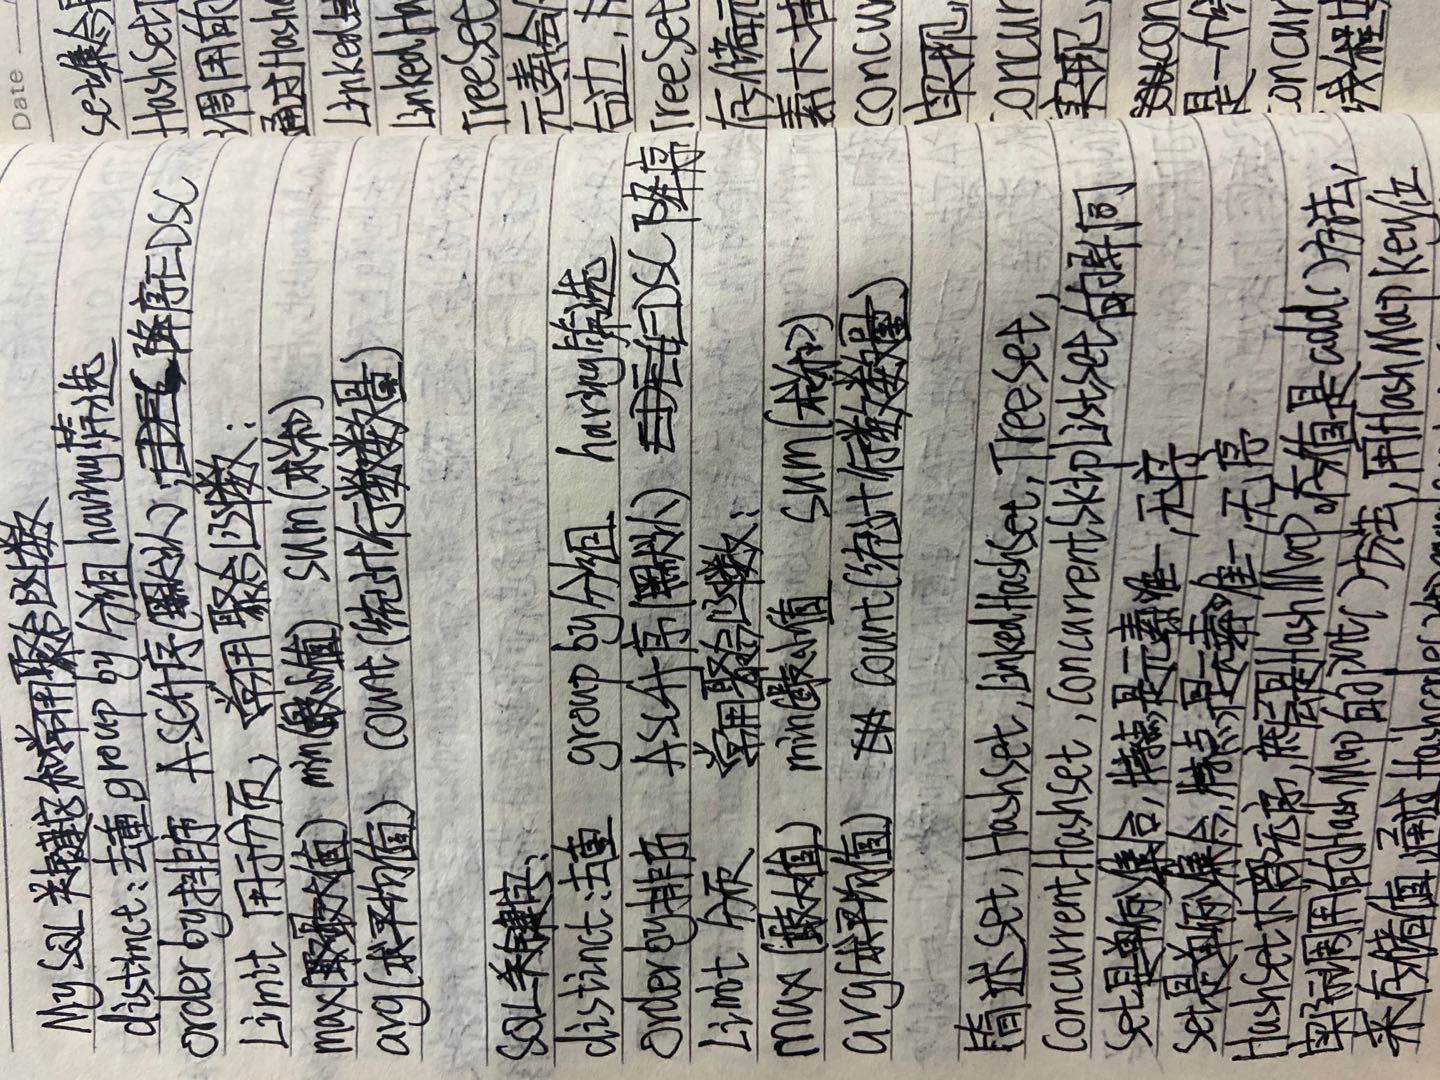 MySQL关键字和常用聚合函数
distinct:去重 group by 分组 having筛选
order by排序 ASC升序(默认); 降序EDSC
Limit 用于分页, 常用聚合函数:
max(取最大值) min(最小值) sum(求和)
avg(求平均值) count(统计行数数量)
SQL关键字:
distinct:去重 group by 分组 having筛选
order by排序 ASC升序(默认) EDSC 降序
Limit 分页 常用聚合函数:
max(最大值) min(最小值 sum(求和)
avg(求平均值) count(统计行数数量)
简述Set, HashSet, LinkedHashSet, TreeSet,
ConcurrentHashSet, ConcurrentSkipListSet的异同
Set是单例集合, 特点是元素唯一, 无序
Set是单例集合, 特点是元素唯一, 无序
HashSet内部无序, 底层是HashMap。存值是add()方法,
实际调用的HashMap的put()方法, 用HashMap key位
来存储值, 通过Hashcode()
Date
set集合
HashSet
调用的
通过Hash
Linked
LinkedHa
TreeSet
元素会
右边,
TreeSet
存储元
素大
concu
实现,
concur
实现,
con
是一个
concur
线程